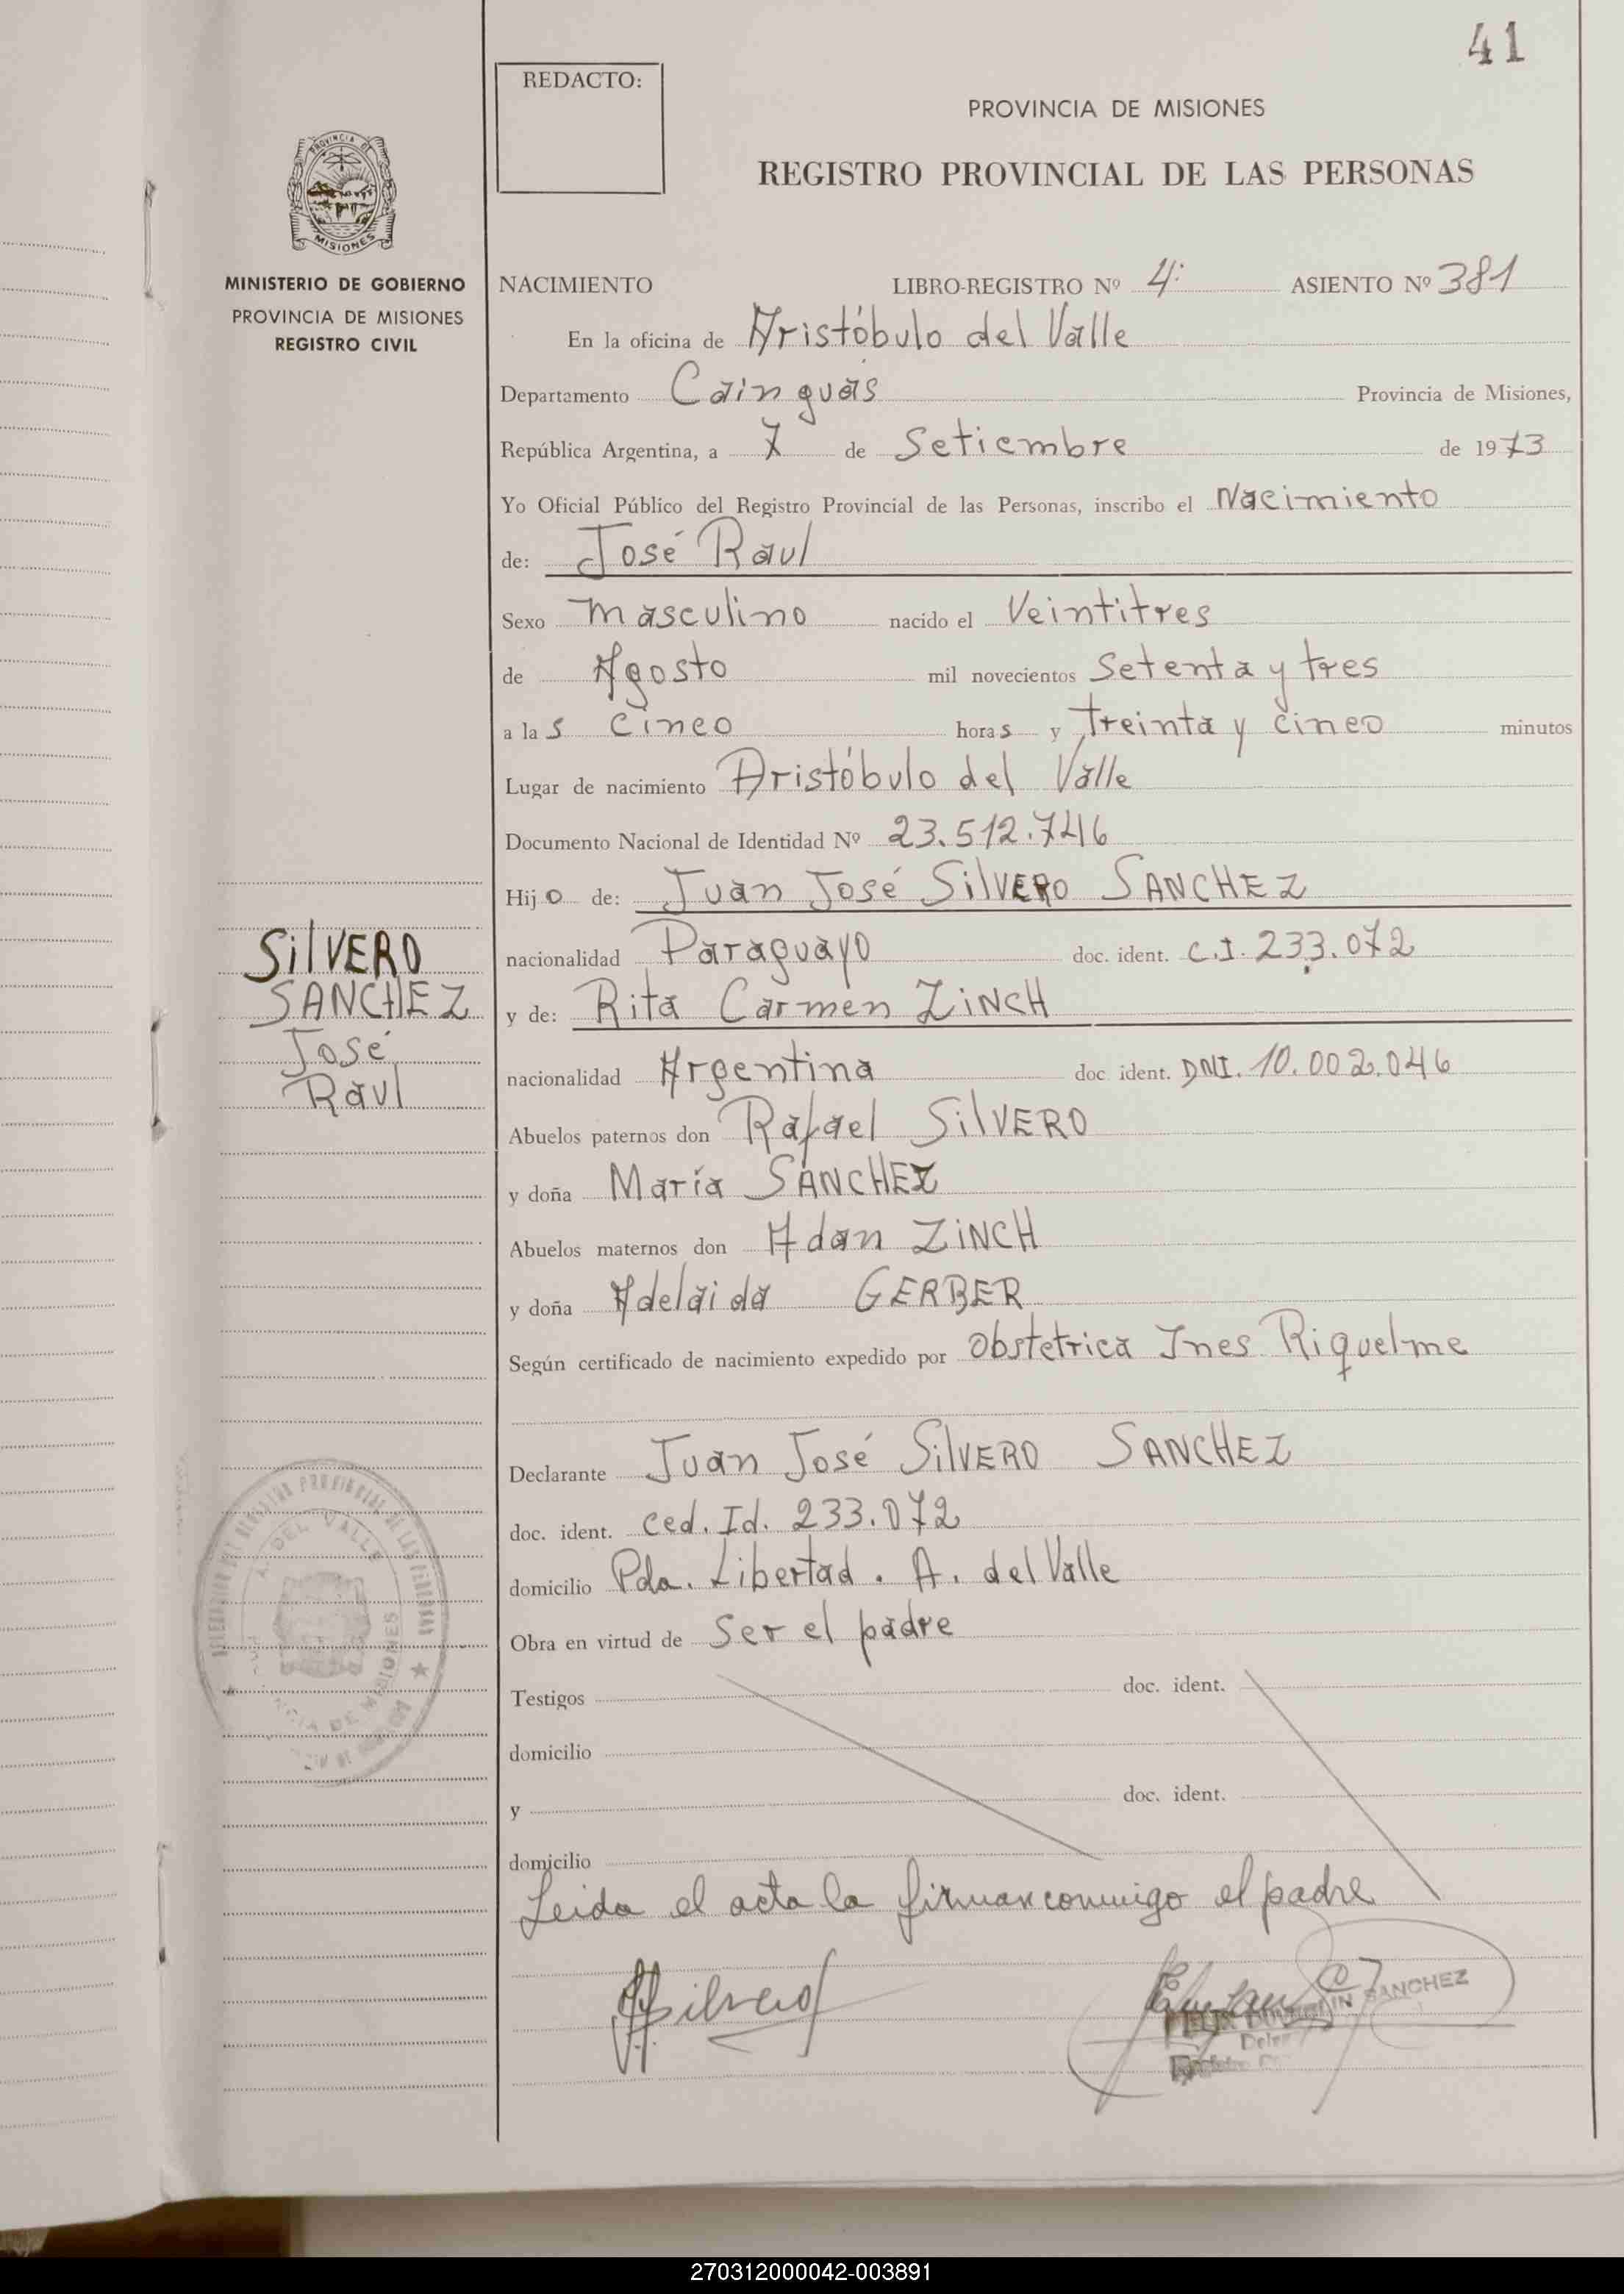 41
REDACTO:
PROVINCIA DE MISIONES
REGISTRO PROVINCIAL DE LAS PERSONAS
PROVINCIA DE
MISIONES
MINISTERIO DE GOBIERNO
PROVINCIA DE MISIONES
REGISTRO CIVIL
NACIMIENTO LIBRO-REGISTRO Nº 4. ASIENTO Nº 381
En la oficina de Aristóbulo del Valle
Departamento Cainguás Provincia de Misiones,
República Argentina, a 7 de Setiembre de 1973
Yo Oficial Público del Registro Provincial de las Personas, inscribo el Nacimiento
de: José Raul
Sexo masculino nacido el Veintitres
de Agosto mil novecientos Setenta y tres
a las cinco horas y treinta y cinco minutos
Lugar de nacimiento Aristóbulo del Valle
Documento Nacional de Identidad Nº 23.512.746
Hijo de: Juan José SilVERO SANCHEZ
nacionalidad Paraguayo doc. ident. C.I. 233.072
y de: Rita Carmen ZiNCH
nacionalidad Argentina doc ident. DNI. 10.002.046
Abuelos paternos don Rafael SilVERO
y doña María SANCHEZ
Abuelos maternos don Adan ZiNCH
y doña Adelaida GERBER
Según certificado de nacimiento expedido por Obstetrica Ines Riquelme
Declarante Juan José SilVERO SANCHEZ
doc. ident. Ced. Id. 233.072
domicilio Pda. Libertad. A. del Valle
Obra en virtud de Ser el padre
Testigos doc. ident.
domicilio
y doc. ident.
domicilio
Leida el acta la firman conmigo el padre
SilVERO
SANCHEZ
José
Raul
REGISTRO PROVINCIAL DE LAS PERSONAS
A. DEL VALLE
DE MISIONES
SANCHEZ
270312000042-003891